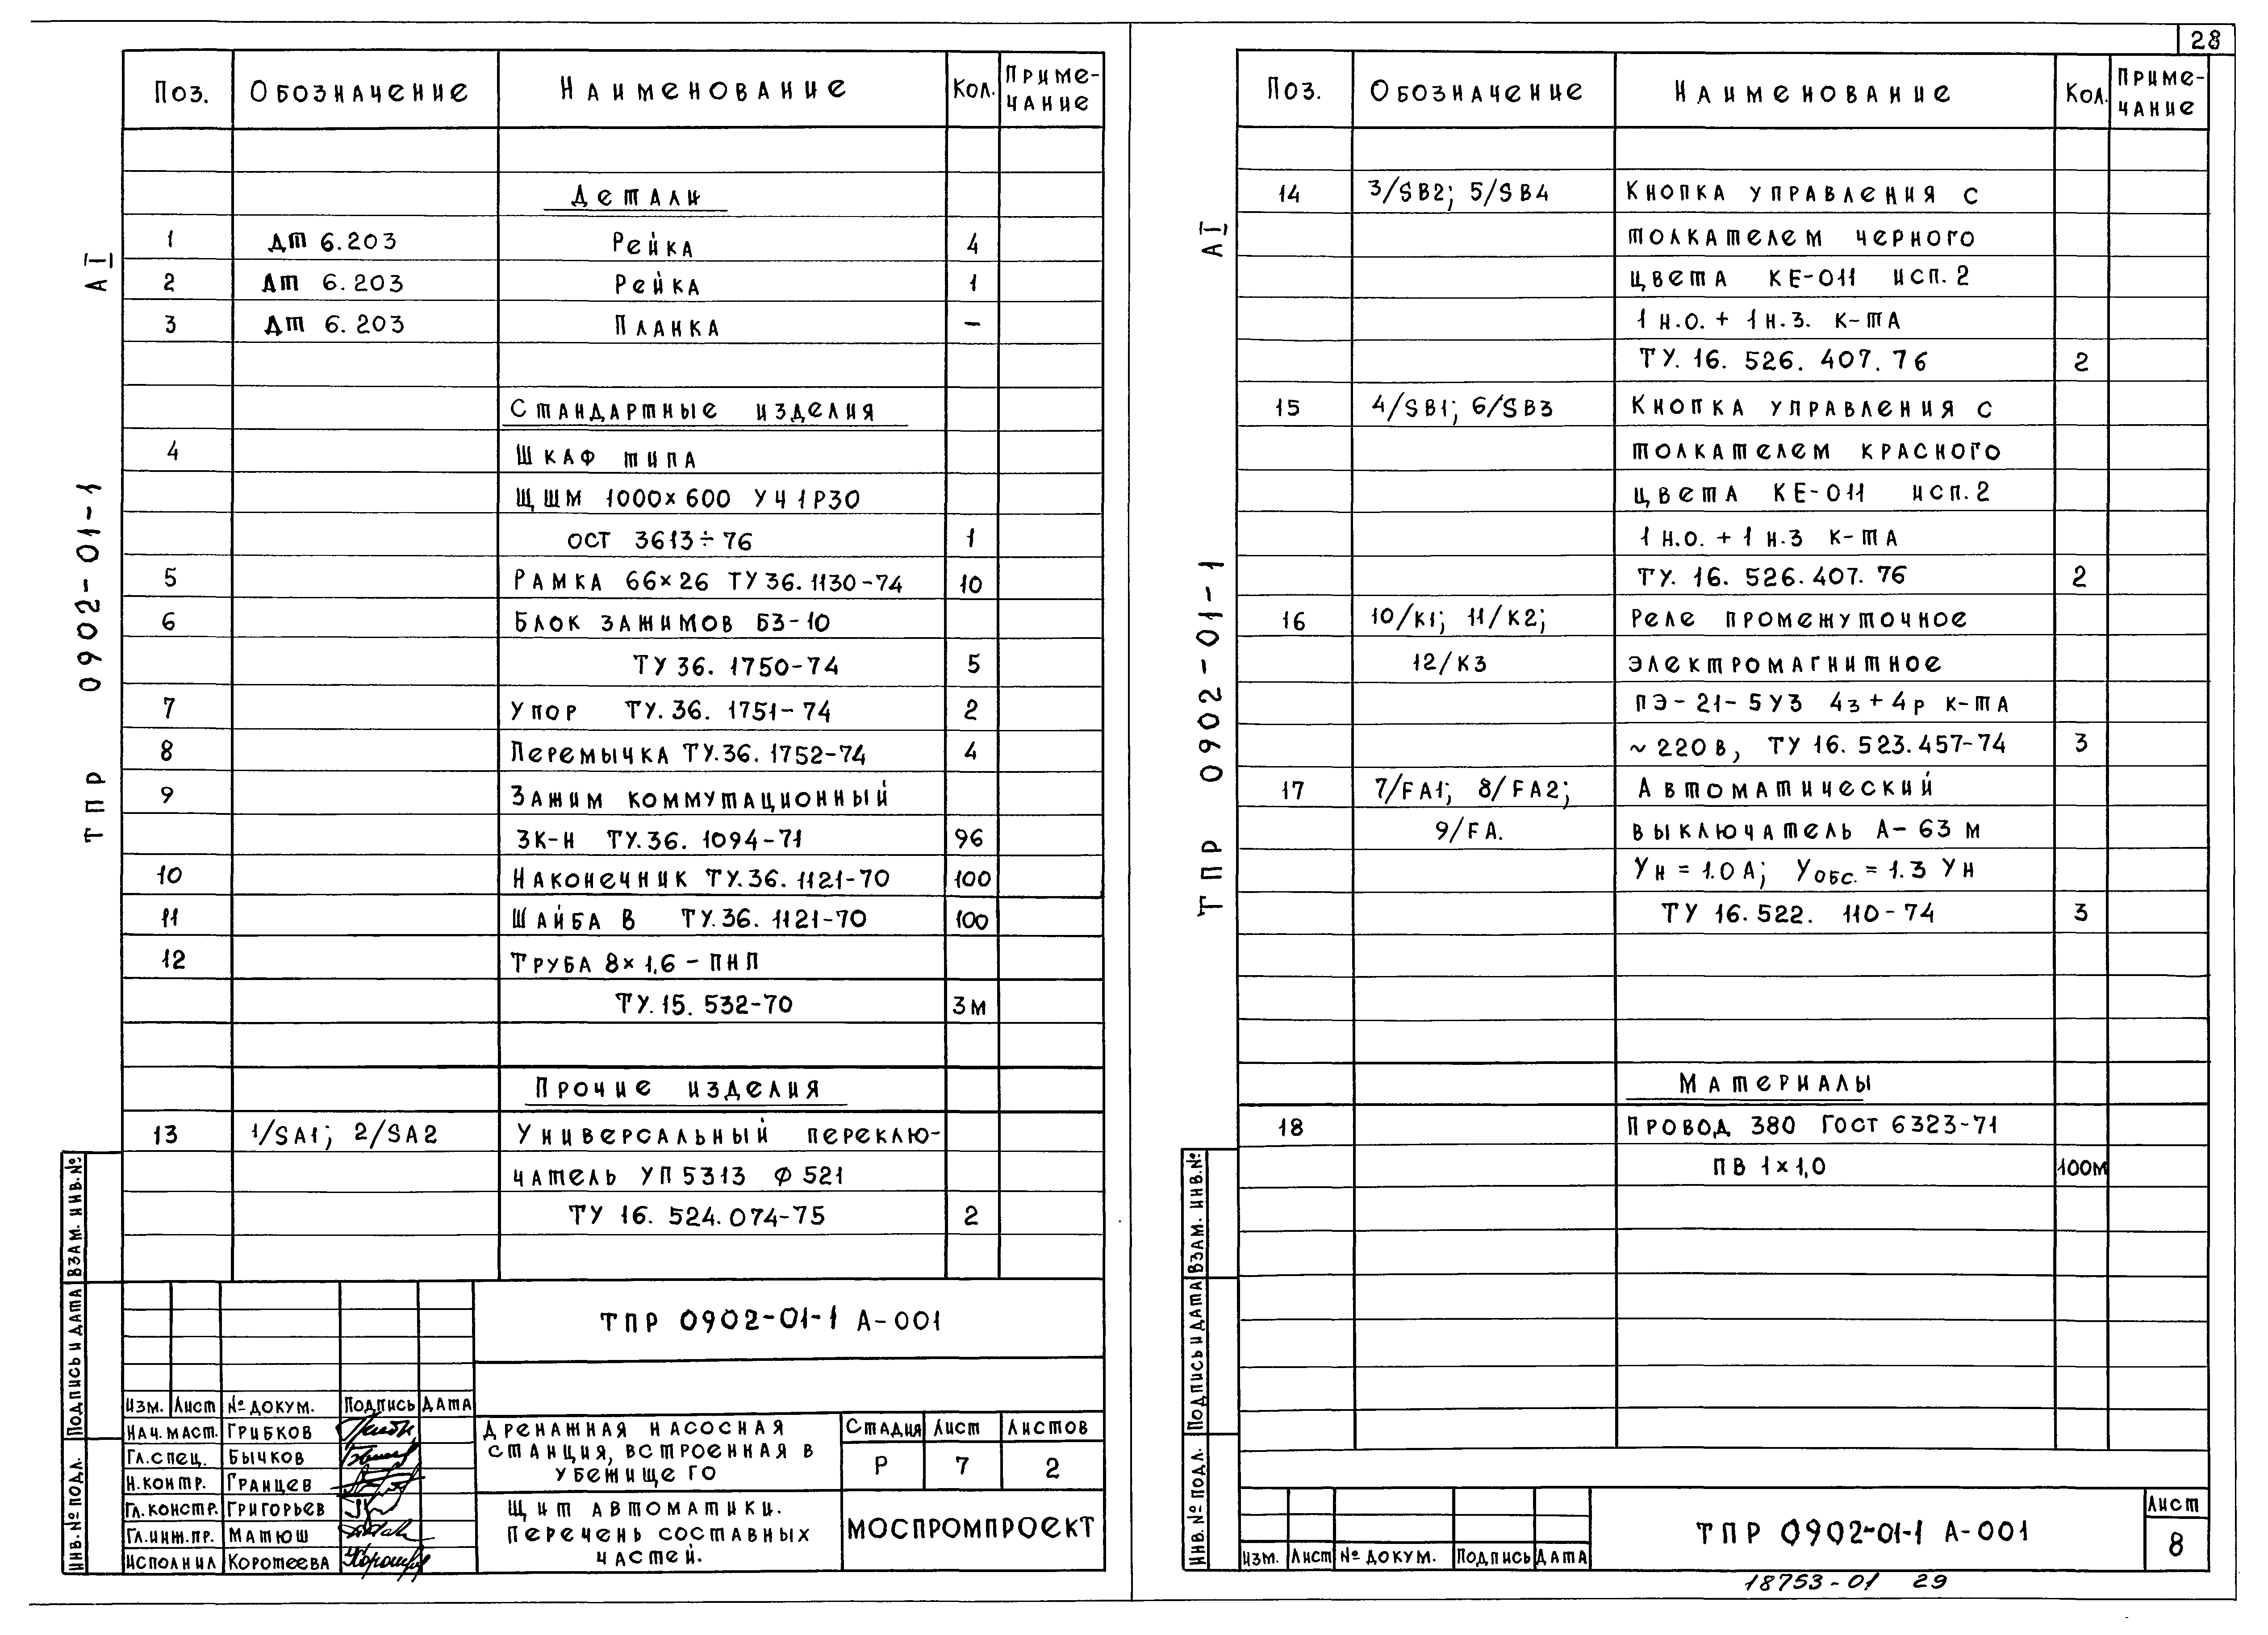 28
Поз. Обозначение Наименование Кол. Приме-
чание
Детали
1 Дт 6.203 Рейка 4
2 Дт 6.203 Рейка 1
3 Дт 6.203 Планка –
Стандартные изделия
4 Шкаф типа
ЩШМ 1000×600 УЧ 1Р30
ОСТ 3613÷76 1
5 Рамка 66×26 ТУ 36.1130-74 10
6 Блок зажимов БЗ-10
ТУ 36.1750-74 5
7 Упор ТУ.36.1751-74 2
8 Перемычка ТУ.36.1752-74 4
9 Зажим коммутационный
ЗК-Н ТУ.36.1094-71 96
10 Наконечник ТУ.36.1121-70 100
11 Шайба В ТУ.36.1121-70 100
12 Труба 8×1,6-ПНП
ТУ.15.532-70 3м
Прочие изделия
13 1/SA1; 2/SA2 Универсальный переклю-
чатель УП 5313 Ф 521
ТУ 16.524.074-75 2
ТПР 0902-01-1 А-001
Изм. Лист № докум. Подпись Дата
Нач. маст. Грибков
Гл. спец. Бычков
Н. контр. Гранцев
Гл. констр. Григорьев
Гл. инж. пр. Матюш
Исполнил Коротеева
Дренажная насосная
станция, встроенная в
убежище ГО
Стадия Лист Листов
Р 7 2
Щит автоматики.
Перечень составных
частей.
МОСПРОМПРОЕКТ
ТПР 0902-01-1 А I
Инв. № подл. Подпись и дата Взам. инв. №
Поз. Обозначение Наименование Кол. Приме-
чание
14 3/SB2; 5/SB4 Кнопка управления с
толкателем черного
цвета КЕ-011 исп. 2
1 н.о. + 1 н.з. к-та
ТУ. 16.526.407.76 2
15 4/SB1; 6/SB3 Кнопка управления с
толкателем красного
цвета КЕ-011 исп. 2
1 н.о. + 1 н.з к-та
ТУ. 16.526.407.76 2
16 10/K1; 11/K2; Реле промежуточное
12/K3 электромагнитное
ПЭ-21-5У3 4з + 4р к-та
~ 220 В, ТУ 16.523.457-74 3
17 7/FA1; 8/FA2; Автоматический
9/FA. выключатель А-63 м
Ун = 1.0 А; Уобс. = 1.3 Ун
ТУ 16.522.110-74 3
Материалы
18 Провод 380 Гост 6323-71
ПВ 1×1,0 100м
Изм. Лист № докум. Подпись Дата
ТПР 0902-01-1 А-001
Лист
8
ТПР 0902-01-1 А I
Инв. № подл. Подпись и дата Взам. инв. №
18753-01 29